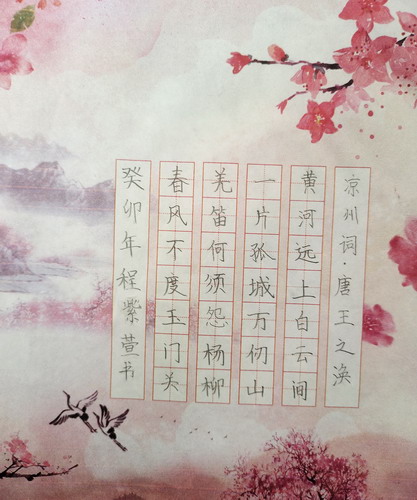 凉州词·唐王之涣
黄河远上白云间
一片孤城万仞山
羌笛何须怨杨柳
春风不度玉门关
癸卯年程紫萱书